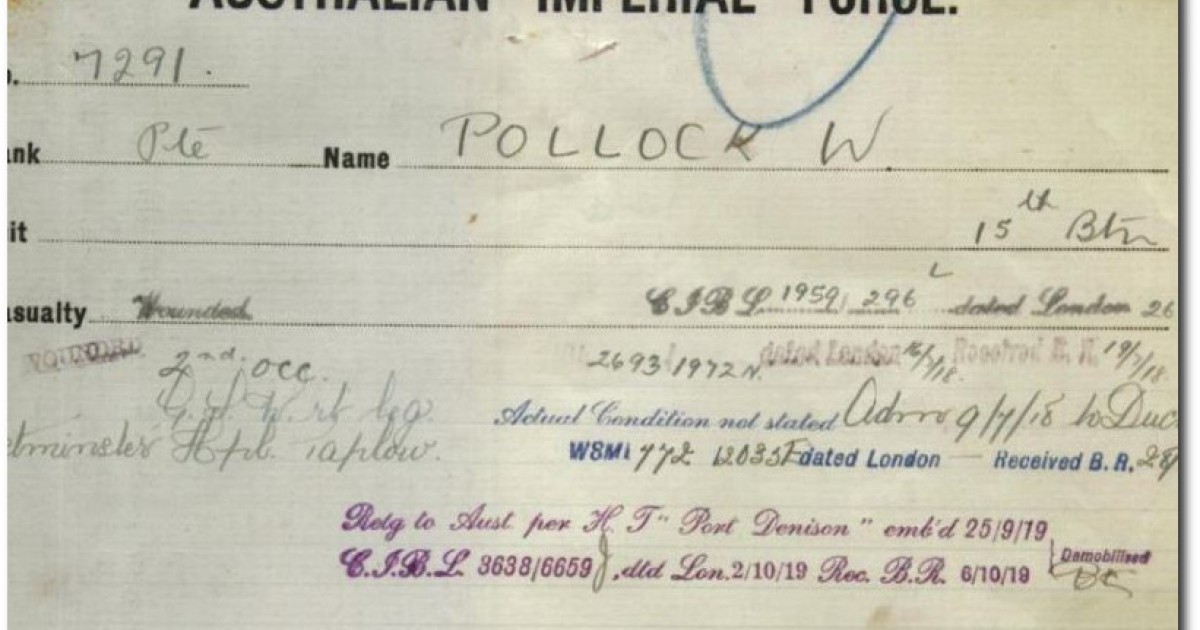 AUSTRALIAN IMPERIAL FORCE.
o. 7291.
ank Pte Name POLLOCK W.
it 15th Btn
asualty Wounded C.I.B.L. 1959/296 dated London 26
WOUNDED 2nd. occ. 2693/1972 N. dated London 16/7/18. Received B. R. 19/7/18.
G.S.W. rt leg. Actual Condition not stated Adm 9/7/18 to Duc
etminster Hpl. Taplow. WSM 772 dated London Received B. R. 
Retg to Aust. per H. T" Port Denison" emb'd 25/9/19
C.I.B.L. 3638/6659, dtd Lon. 2/10/19 Rec. B.R. 6/10/19 Demobilised